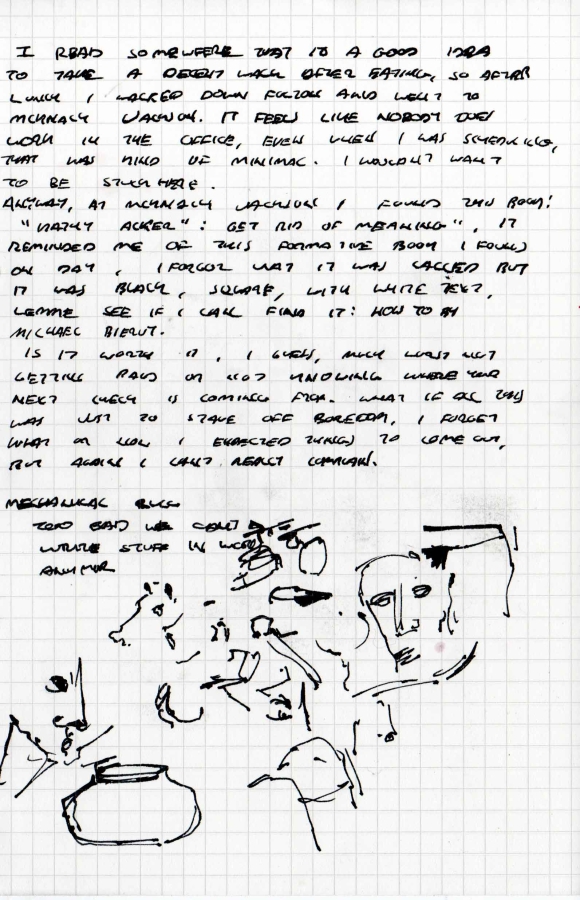 I READ SOMEWHERE THAT IT A GOOD IDEA
TO TAKE A DECENT WALK AFTER EATING, SO AFTER
LUNCH I WALKED DOWN FULTON AND WENT TO
MCNALLY JACKSON. IT FEELS LIKE NOBODY DOES
WORK IN THE OFFICE, EVEN WHEN I WAS SCHEDULING,
THAT WAS KIND OF MINIMAL. I WOULDN'T WANT
TO BE STUCK HERE.
ANYWAY, AT MCNALLY JACKSON I FOUND THIS BOOK!
"KATHY ACKER": GET RID OF MEANING", IT
REMINDED ME OF THIS FORMATIVE BOOK I FOUND
ON DAY, I FORGOT WHAT IT WAS CALLED BUT
IT WAS BLACK, SQUARE, WITH WHITE TEXT,
LEMME SEE IF I CAN FIND IT: HOW TO BY
MICHAEL BIERUT.
IS IT WORTH IT, I GUESS, MUCH WORST NOT
GETTING PAID OR NOT KNOWING WHERE YOUR
NEXT CHECK IS COMING FROM. WHAT IF ALL THIS
WAS JUST TO STAVE OFF BOREDOM, I FORGET
WHAT OR HOW I EXPECTED THINGS TO COME OUT,
BUT AGAIN I CAN'T REALLY COMPLAIN.
MECHANICAL
TOO BAD WE CAN'T
WRITE STUFF IN WORD
ANYMOR